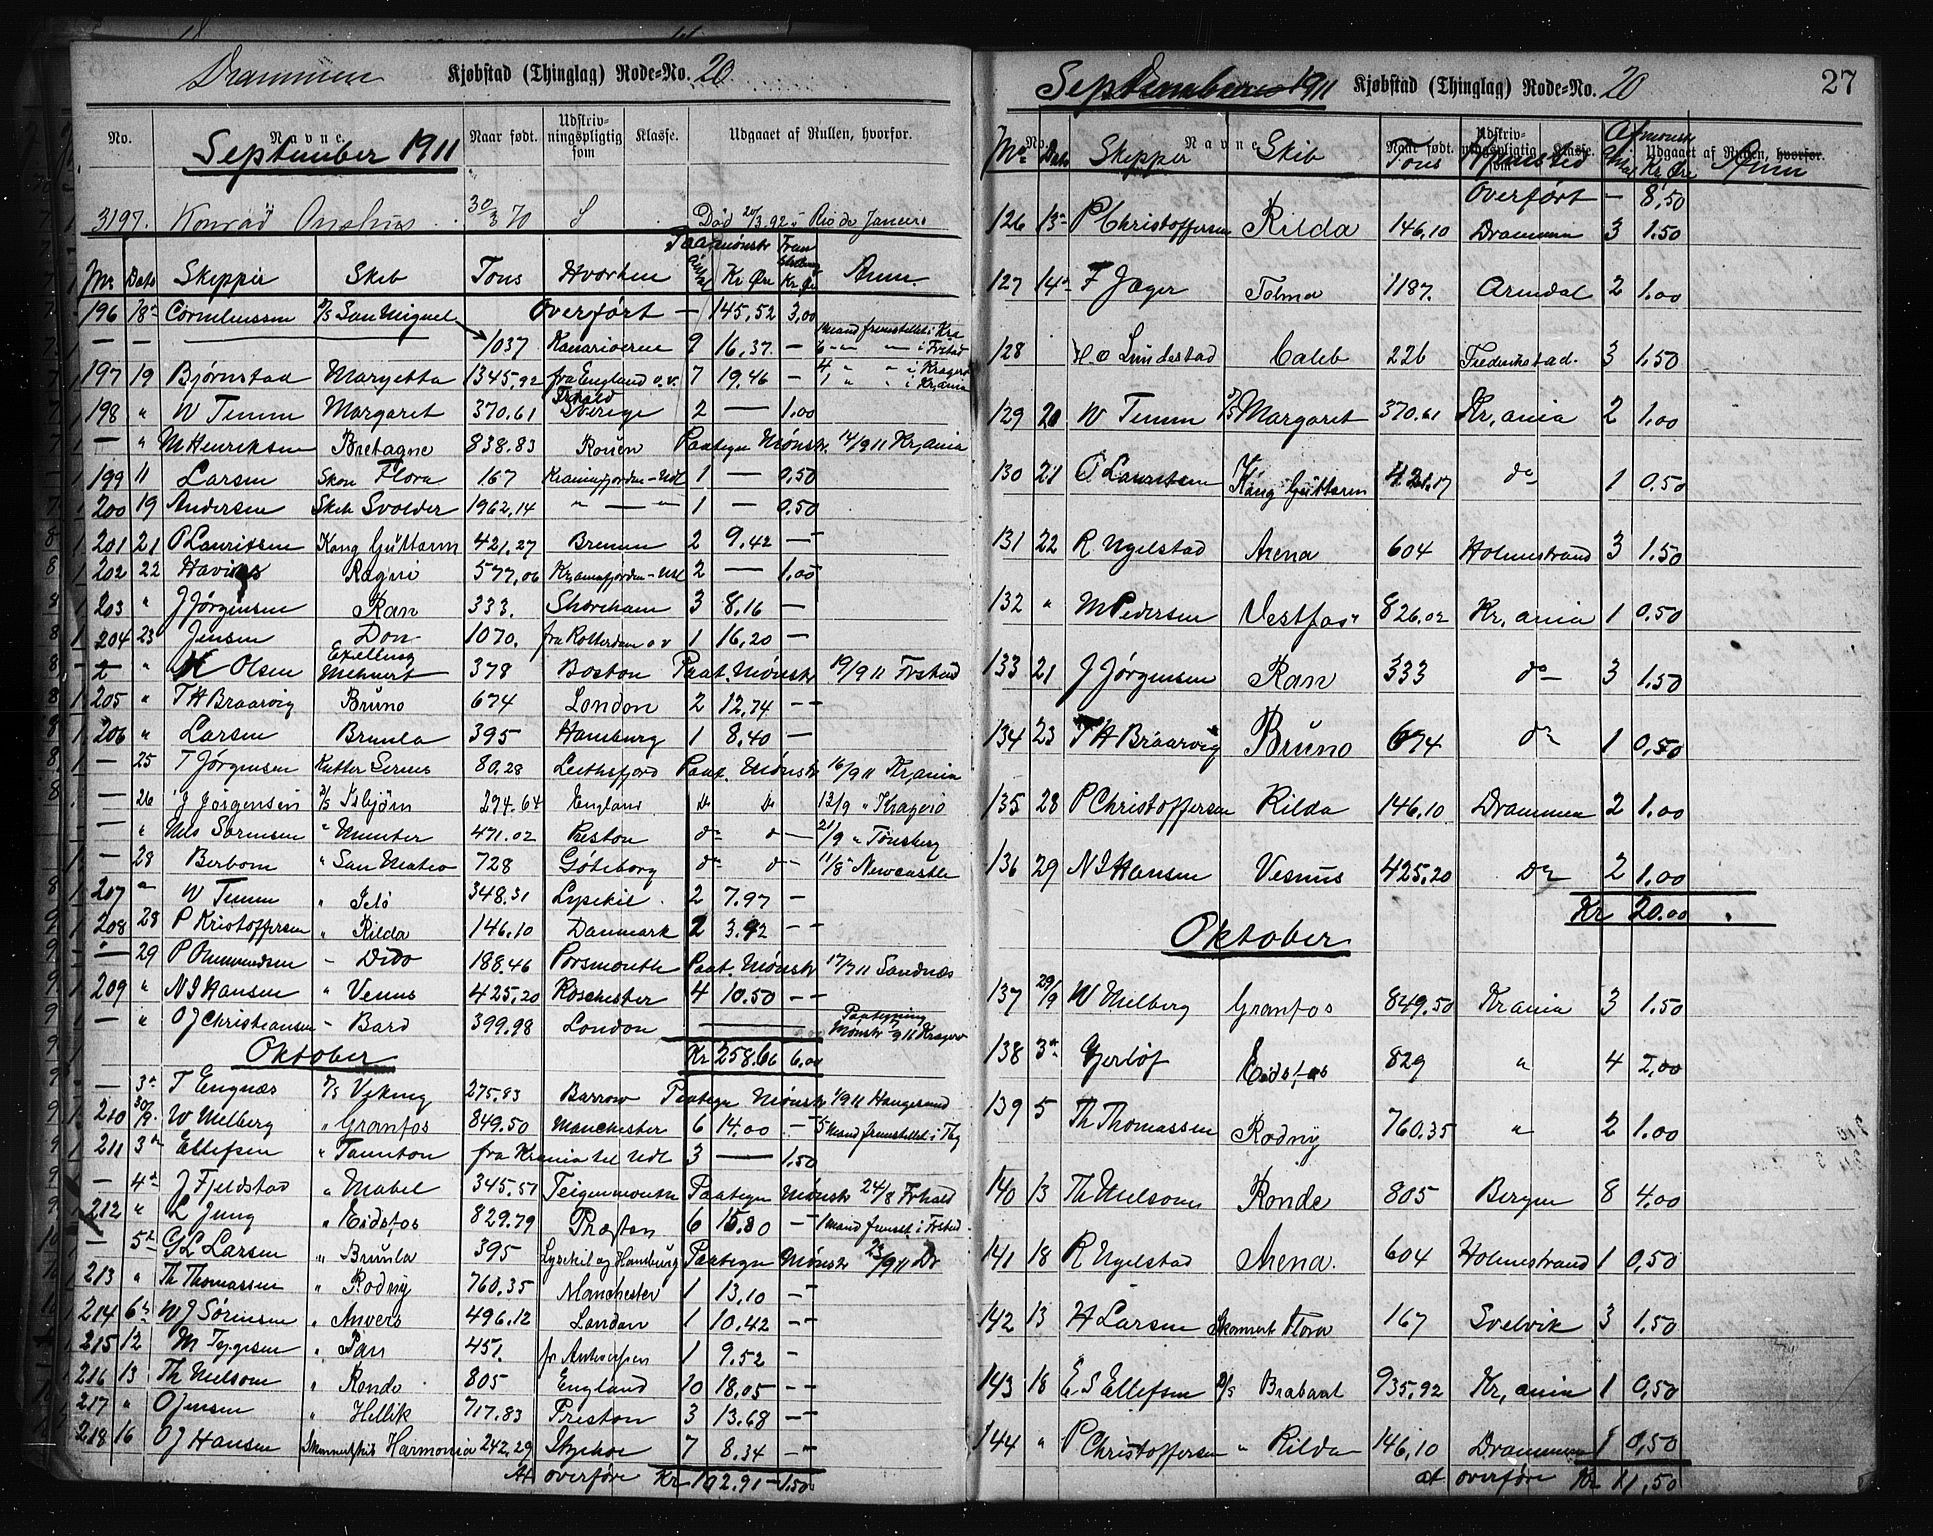 Drammen Kjøbstad (Thinglag) Rode-No. 20
No. Navne. Naar født. Udskrivningspligtig som Klasse. Udgaaet af Rullen, hvorfor.
September 1911
3197. Konrad 30/3 70 S Død 20/3.92 i Rio de Janeiro
No Dato Skipper Skib Tons Hvorhen Antal Paamønstr Kr Øre Kr Øre Anm.
196 18de Corneliussen D/S San Miguel Overført — 145,52 3,00
— — 1037 Kanariøerne 9 16,37 — 1 Mand fremstillet i Kra
197 19 Bjørnstad Margetta 1345,92 fra England o.v. 7 19,46 —
198 " W Temm Margaret 370.61 Frhald Sverige 2 — 1.00
— " M Henriksen Bretagne 838.83 Rouen Paategn Mønstr. 14/9 11 Kr,ania
199 11 Larsen Skon Flora 167 Kr.aniafjorden - Udl 1 — 0.50
200 19 Andersen Skib Svolder 1962,14 " — " 1 — 0.50
201 21 P Lauritsen Kong Guttorm 421,27 Bremen 2 9.42 —
202 22 Ragni 577,06 Kr,aniafjorden - Udl 2 — 1.00
203 " J Jørgensen Ran 333. Shoreham 3 8.16 —
204 23 Jensen Don 1070. fra Rotterdam o v 1 16,20 —
— " Olsen Mehnert 378 Boston Paat. Mønstr 19/9 11 Frstad
205 " T H Braarvig Bruno 674 London 2 12,74 — —
206 " Larsen Brunla 395 Hamburg 1 8,40 —
— 25 T Jørgensen Kutter Serius 80,28 Leithsfjord Paat. Mønstr 16/9 11 Kr,ania
— 26 J Jørgensen D/S Isbjørn 274.64 England do do 13/9 " Kragerø
— " Nils Sørensen " Munter 471.02 Preston do do — 21/9 " Tønsberg
— 28 Berbom " San Mateo 728 Göteborg do do — 11/8 " Newcastle
207 " W Temm " Jelö 348.31 Lysekil 2 7.97 —
208 28 P Kristoffersen " Rilda 146.10 Danmark 2 3.92 — —
— 29 P Ommundsen - Dido 188.46 Porsmouth Paat. Mønstr 17/7 11 Sandnæs
209 " N I Hansen " Venus 425,20 Roschester 4 10.50 — —
— " O J Christiansen - Bard 399.98 London — Paategning Mønstr /9 11 Kragerø
Oktober Kr 258.66 6,00
— 3de T Engnæs D/S Viking 275.83 Barrow Paategn Mønstr 1/9 11 Haugesund
210 30/9. W Melberg " Granfos 849.50 Manchester 6 14.00 — 5 Mand fremstillet i Tbg
211 3de Ellefsen " Taunton fra Krania til Udl 3 — 1.50
— 4de J Fjeldstad " Mabel 345.51 Teigenmouth Paategn Mønstr 24/8 Frhald
212 " L Jung " Eidsfos 829.79 Præston 6 15.80 — 1 Mand fremst i Frstad
— 5te G L Larsen " Brunla 395 Lysekil og Hamburg Paategn Mønstr 23/9 11 Dr
213 " Th Thomassen " Rodny 760.35 Manchester 1 13.10 — —
214 6te W J Sörensen " Anvers 496.12 London 1 10.42 — —
215 12 M Tygesen " Pan 451. fr Antwerpen 1 9.52 —
216 13 Th Nielsom " Ronde 805 England 10 18.05 — —
217 " O Jensen " Hellik 717.83 Preston 3 13.68 — —
218 16 O J Hansen Skonnertskib Harmonia 242,29 7 8.34 — "
At overføre Kr 102.91 — 1,50
September 1911 Kjøbstad (Thinglag) Rode-No. 20 27
No. Navne. Naar født. Udskrivningspligtig som Klasse. Udgaaet af Rullen, hvorfor.
No Dato Skipper Skib Tons Hjemsted Antal Afmønstr Kr Øre Anm
Overført — 8,50
126 13de P Christoffersen Rilda 146,10 Drammen 3 1.50
127 14de F Jæger Tolma 1187. Arendal 2 1.00
128 H O Lundestad Caleb 226 Frederikstad. 3 1.50
129 20 W Temm D/S Margaret 370.61 Kr,ania 2 1.00
130 21 P Lauritsen D/S Kong Guttorm 421.17 do 1 0.50
131 22 R Ugelstad Arena 604 Holmestrand 3 1.50
132 " M Pedersen Vestfos 826.02 Kr,ania 1 0.50
133 21 J Jørgensen Ran 333 do 3 1.50
134 23 T H Braarvig Bruno 674 do 1 0.50
135 28 P Christoffersen Rilda 146.10 Drammen 2 1.00
136 29 N I Hansen Venus 425,20 Do 2 1.00
Kr 20.00
Oktober
137 29/9 W Melberg Granfos 849.50 Krania 3 1.50
138 3de Gjerløf Eidsfos 829 " 4 2,00
139 5 Th Thomassen Rodny 760.35 " 2 1.00
140 13 Th Nielsom Ronde 805 Bergen 8 4.00
141 18 R Ugelstad Arena. 604 Holmestrand 1 0,50
142 13 H Larsen Skonnert Flora 167 Svelvik 3 1.50
143 18 E. S Ellefsen D/S Brabant 935,92 Kr,ania 1 0,50
144 " P Christoffersen " Rilda 146,10 Drammen 1 0,50
at overføre Kr 11,50